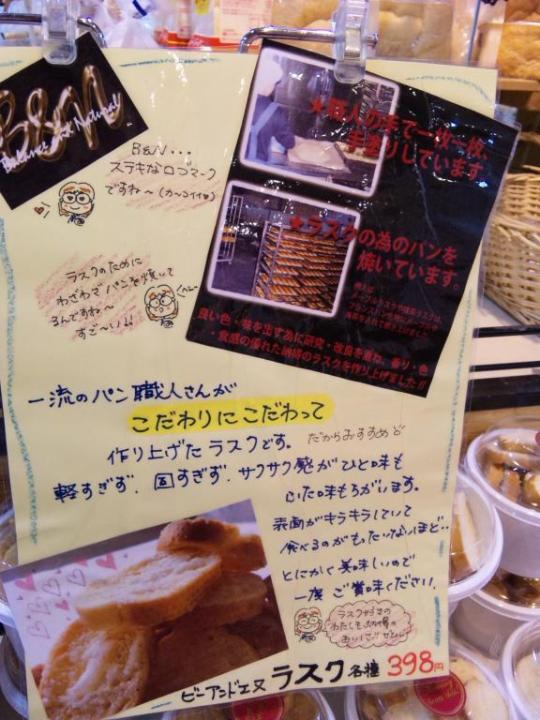 B&N
B&N...
ステキなロゴマーク
ですね～(カッコイイ♡)
★職人の手で一枚一枚、
手塗りしています。
★ラスクの為のパンを
焼いています。
良い色・味を出す為に研究・改良を重ね、香り・色
・食感の優れた納得のラスクを作り上げました!!
ラスクのために
わざわざパンを焼いて
るんですね～
すご～い!!
一流のパン職人さんが
こだわりにこだわって
作り上げたラスクです。だからおすすめど
軽すぎず、固すぎず、サクサク感がひと味も
ふた味もちがいます。
表面がキラキラしていて
食べるのがもったいないほど‥
とにかく美味しいので
一度ご賞味ください。
ラスク好きの
わたしも納得の
おいしさです
ビーアンドエヌ ラスク 各種 398円